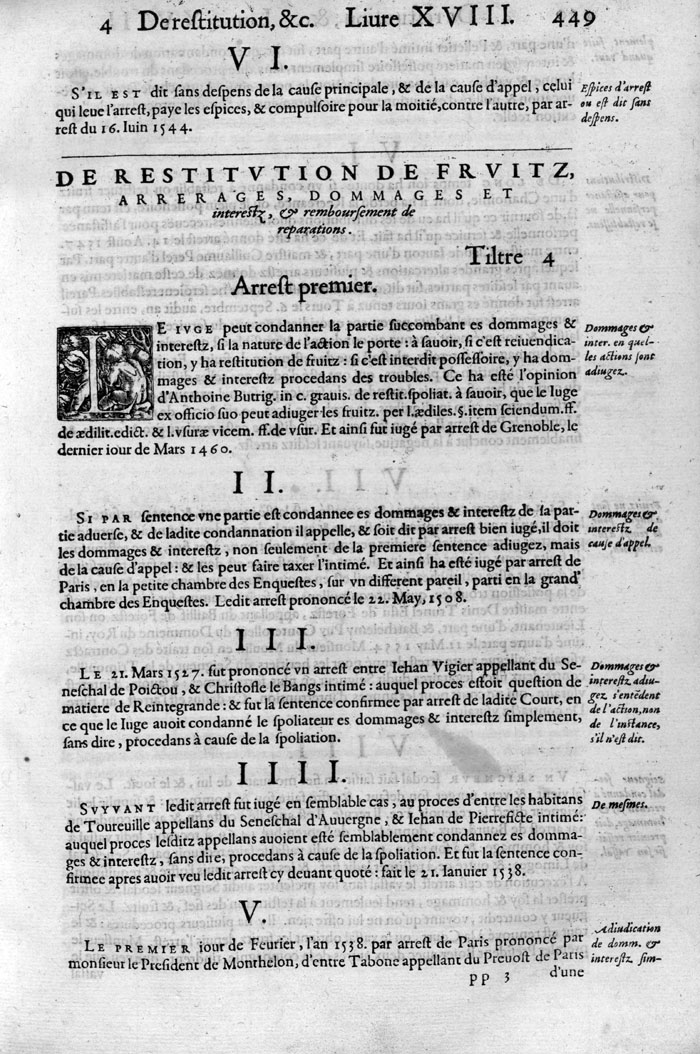 4 De restitution, &c. Liure XVIII. 449
VI.
S'IL EST dit sans despens de la cause principale, & de la cause d'appel, celui
qui leue l'arrest, paye les espices, & compulsoire pour la moitié, contre l'autre, par ar-
rest du 16. Iuin 1544.
Espices d'arrest
ou est dit sans
despens.
DE RESTITVTION DE FRVITZ,
ARRERAGES, DOMMAGES ET
interestz, & remboursement de
reparations.
Tiltre 4
Arrest premier.
LE IVGE peut condanner la partie succombant es dommages &
interestz, si la nature de l'action le porte : à sauoir, si c'est reiuendica-
tion, y ha restitution de fruitz : si c'est interdit possessoire, y ha dom-
mages & interestz procedans des troubles. Ce ha esté l'opinion
d'Anthoine Butrig. in c. grauis. de restit. spoliat. à sauoir, que le Iuge
ex officio suo peut adiuger les fruitz. per l. ædiles. §. item sciendum. ff.
de ædilit. edict. & l. vsuræ vicem. ff. de vsur. Et ainsi fut iugé par arrest de Grenoble, le
dernier iour de Mars 1460.
Dommages &
inter. en quel-
les actions sont
adiugez.
II.
SI PAR sentence vne partie est condannee es dommages & interestz de sa par-
tie aduerse, & de ladite condannation il appelle, & soit dit par arrest bien iugé, il doit
les dommages & interestz, non seulement de la premiere sentence adiugez, mais
de la cause d'appel : & les peut faire taxer l'intimé. Et ainsi ha esté iugé par arrest de
Paris, en la petite chambre des Enquestes, sur vn different pareil, parti en la grand'
chambre des Enquestes. Ledit arrest prononcé le 22. May, 1508.
Dommages &
interestz de
cause d'appel.
III.
LE 21. Mars 1527. fut prononcé vn arrest entre Iehan Vigier appellant du Se-
neschal de Poictou, & Christofle le Bangs intimé : auquel proces estoit question de
matiere de Reintegrande : & fut la sentence confirmee par arrest de ladite Court, en
ce que le Iuge auoit condanné le spoliateur es dommages & interestz simplement,
sans dire, procedans à cause de la spoliation.
Dommages &
interestz adiu-
gez, s'entēdent
de l'action, non
de l'instance,
s'il n'est dit.
IIII.
SVYVANT ledit arrest fut iugé en semblable cas, au proces d'entre les habitans
de Toureuille appellans du Seneschal d'Auuergne, & Iehan de Pierreficte intimé:
auquel proces lesditz appellans auoient esté semblablement condannez es domma-
ges & interestz, sans dire, procedans à cause de la spoliation. Et fut la sentence con-
firmee apres auoir veu ledit arrest cy deuant quoté : fait le 21. Ianuier 1538.
De mesmes.
V.
LE PREMIER jour de Feurier, l'an 1538. par arrest de Paris prononcé par
monsieur le President de Monthelon, d'entre Tabone appellant du Preuost de Paris
Adiudication
de domm. &
interestz sim-
PP 3 d'une